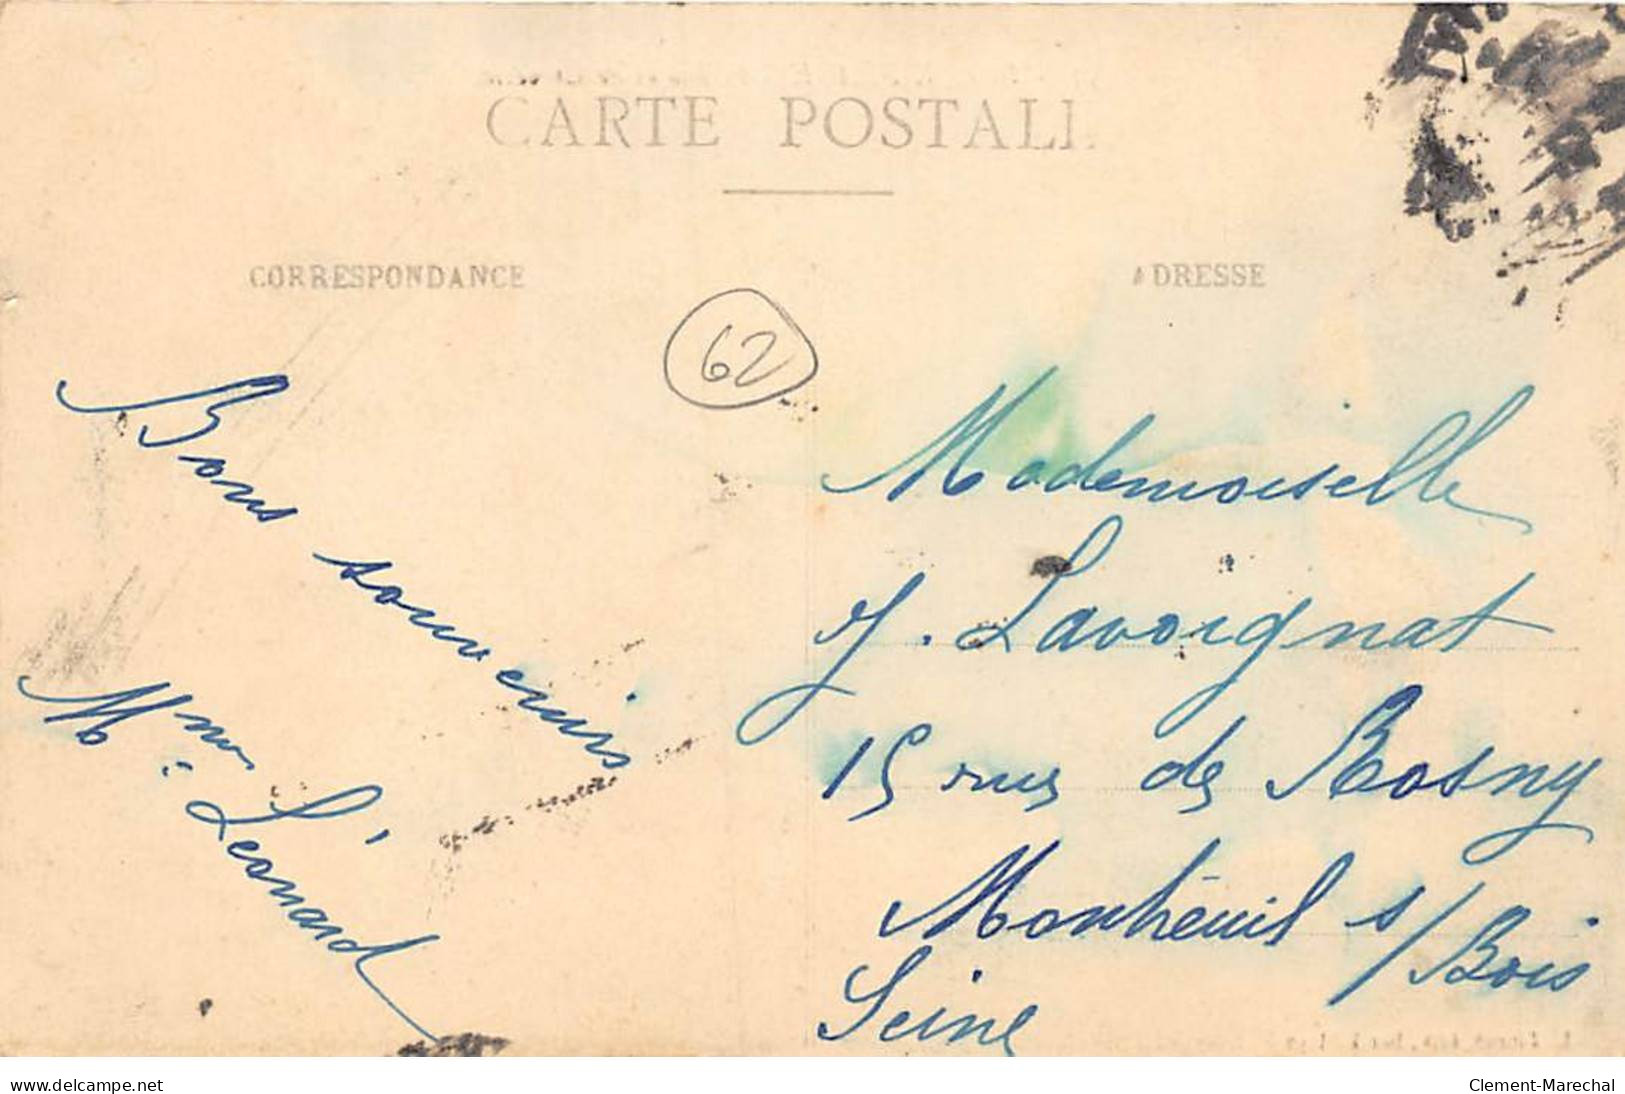 CARTE POSTALE
CORRESPONDANCE
ADRESSE
62
Bons souvenirs
Mme Léonard
Mademoiselle
J. Lavoignat
15 rue de Rosny
Montreuil s/Bois
Seine
www.delcampe.net
Clement-Marechal